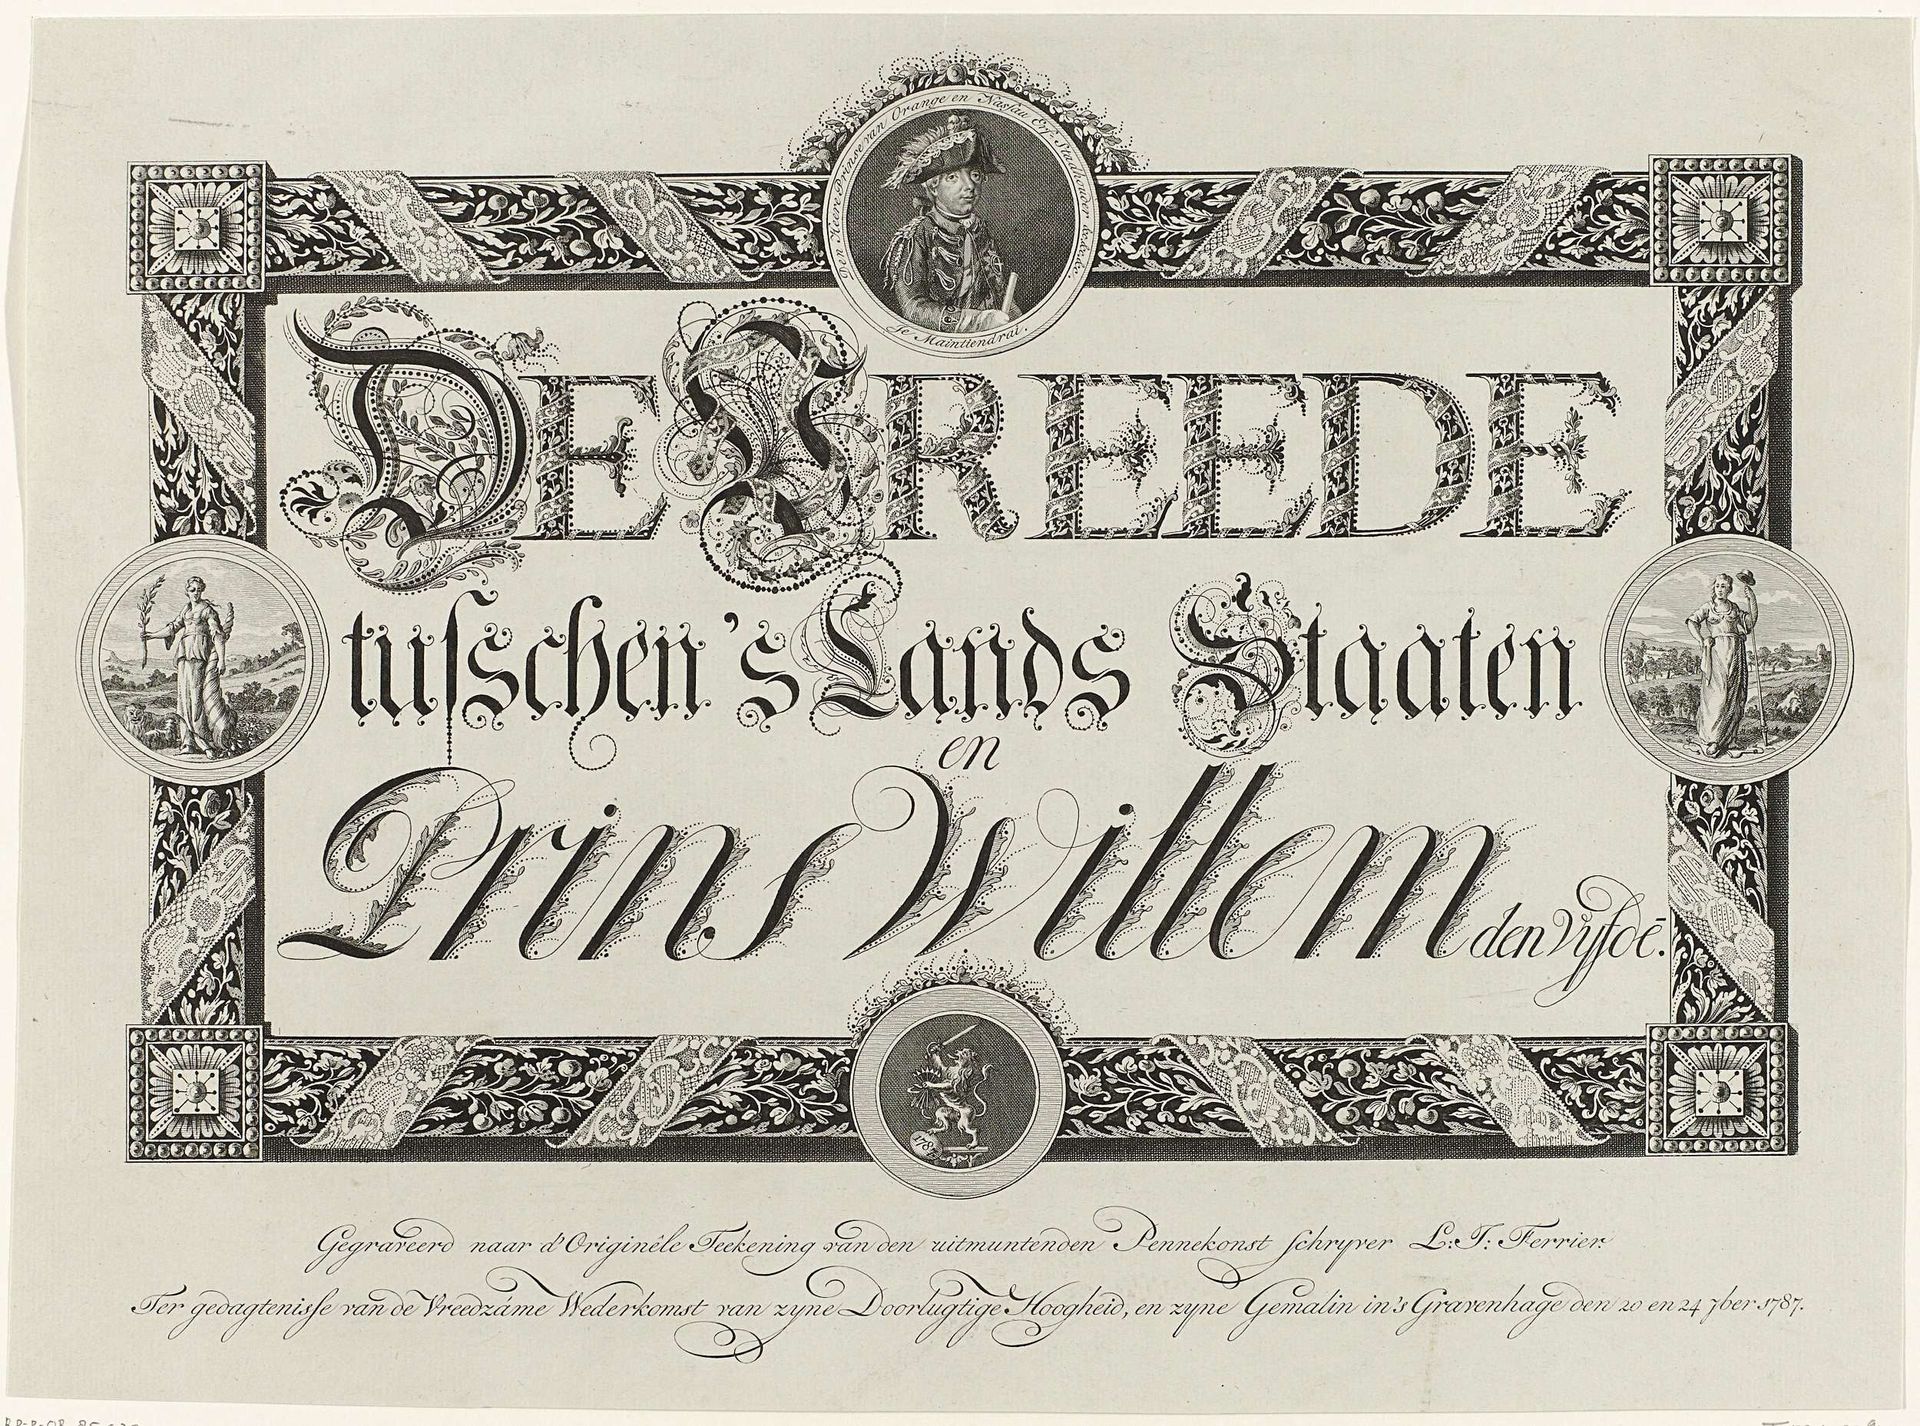 De Heere Prince van Orange en Nassau Erf Stadhouder &c&c&c
Je Maintiendrai.
DE VREEDE
tusschen 's Lands Staaten
en
Prins Willem den Vyfdē.
1787
Gegraveerd naar d'Originéle Teekening van den uitmuntenden Pennekonst schryver L: J: Ferrier.
Ter gedagtenisse van de Vreedzáme Wederkomst van zyne Doorlugtige Hoogheid, en zyne Gemalin in 's Gravenhage den 20 en 24 7ber 1787.